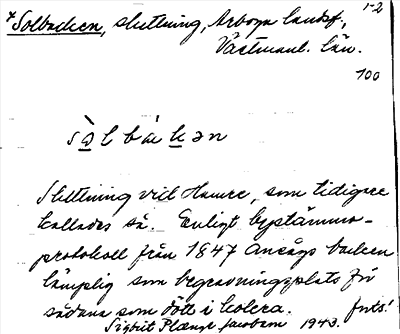 *Solbacken, sluttning, Arboga landsf., 1-2
Västmanl. län.
100
sòlbákən
Sluttning vid Hamre, som tidigare
kallades så. Enligt bystämmo-
protokoll från 1847 ansågs backen
lämplig som begravningsplats för
sådana som dött i kolera. forts!
Sigbrit Plange Jacobson 1943.